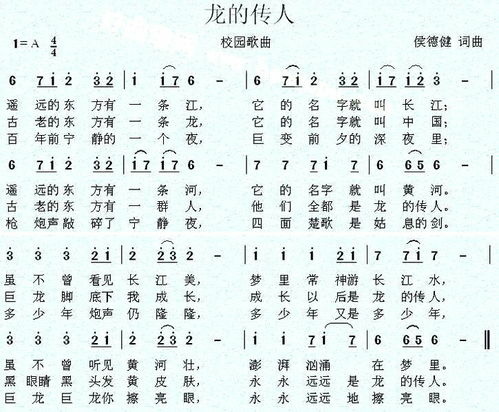 龙的传人
1=A 4/4 校园歌曲 侯德健 词曲
6 7i 2 32 | i i7 6 - | 6 7i 2 32 | i i7 6 - |
遥 远的东 方有 一 条 江， 它 的 名 字就 叫 长 江；
古 老的东 方有 一 条 龙， 它 的 名 字就 叫 中 国；
百 年前宁 静的 一 个 夜， 巨 变 前 夕的 深 夜 里；
6 7i 2 32 | i7 i7 6 - | 7 7 7 i | 6 65 6 - |
遥 远的东 方有 一 条 河， 它 的 名字 就 叫 黄 河。
古 老的东 方有 一 群 人， 他 们 全都 是 龙 的传 人。
枪 炮声敲 碎了 宁 静夜， 四 面 楚歌 是 姑 息的 剑。
3 3 3 2i | 2 23 2 - | i i i 2i | 7 i7 6 - |
虽 不 曾 看见 长 江 美， 梦 里 常 神游 长 江 水，
巨 龙 脚 底下 我 成长， 成 长 以 后是 龙 的传人，
多 少 年 炮声 仍 隆隆， 多 少 年 又是 多 少年，
3 3 3 2i | 2 23 2 - | i i 2i 7 | 6 65 6 - ‖
虽 不 曾 听见 黄 河 壮， 澎 湃 汹涌 在 梦 里。
黑 眼睛 黑 头发 黄 皮肤， 永 永 远远 是 龙 的传人。
巨 龙巨 龙你 擦 亮眼， 永 永 远远 地 擦 亮眼。